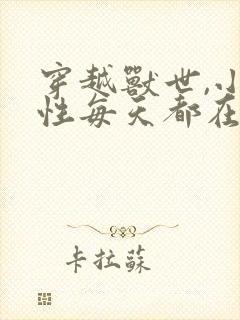 穿越獸世,小
性每天都在
卡拉蘇